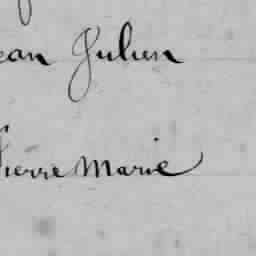 ean Julien
Pierre Marie